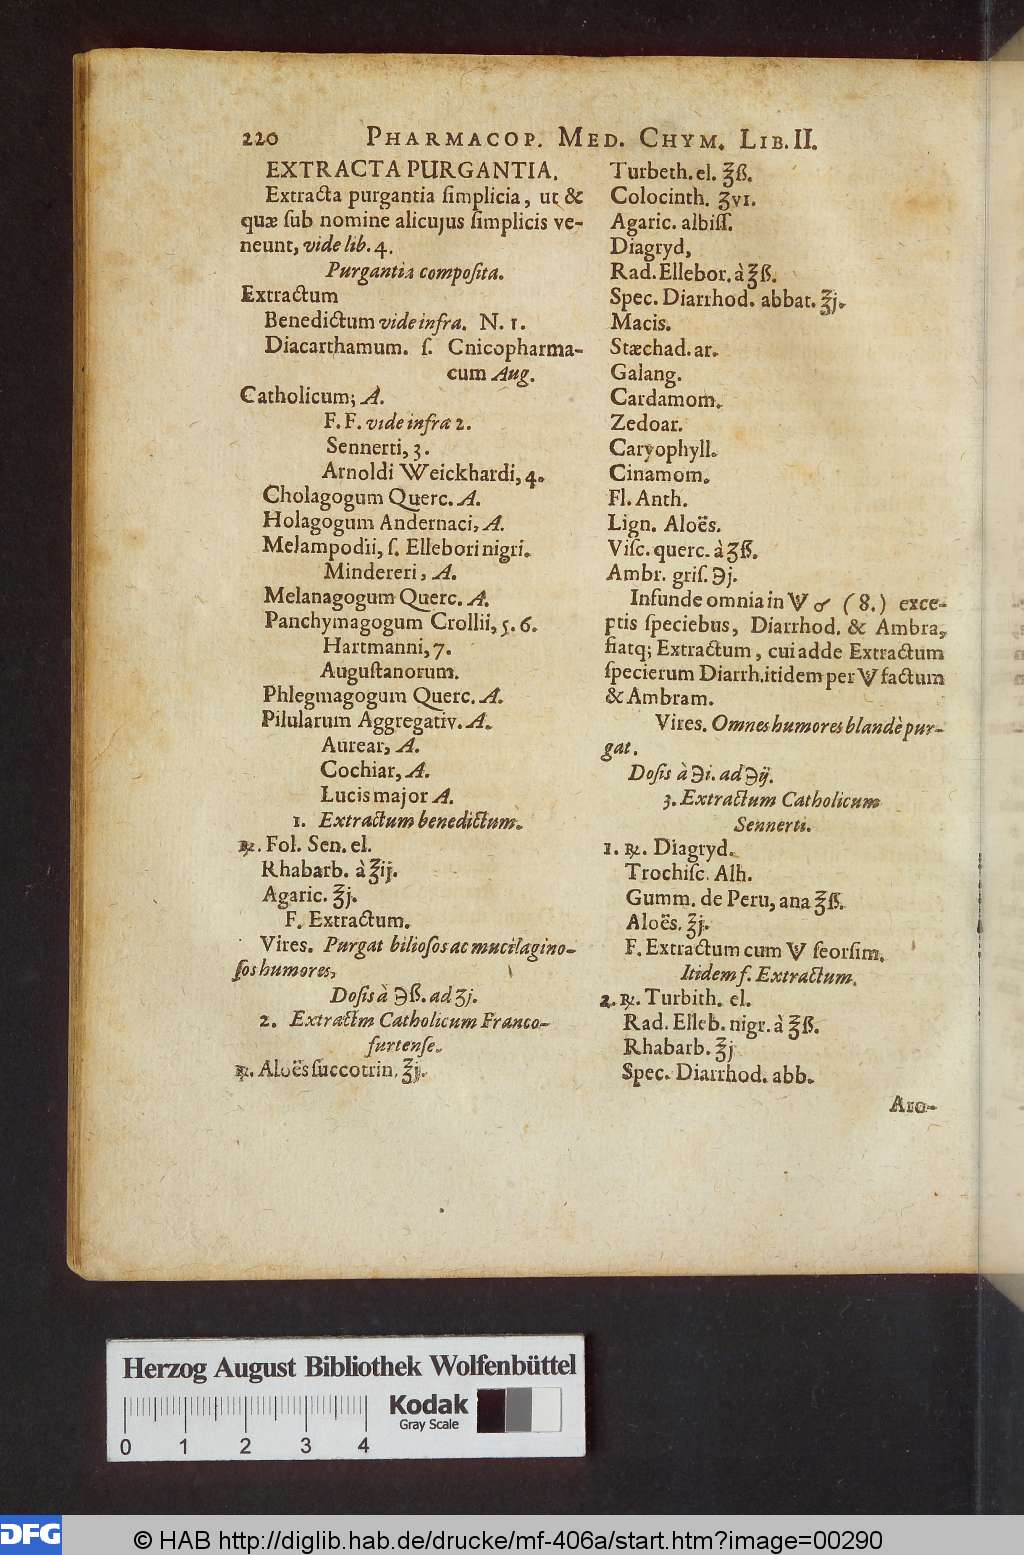 220 PHARMACOP. MED. CHYM. LIB. II.
EXTRACTA PURGANTIA.
Extracta purgantia ſimplicia, ut &
quæ ſub nomine alicujus ſimplicis ve-
neunt, vide lib. 4.
Purgantia compoſita.
Extractum
Benedictum vide infra. N. 1.
Diacarthamum. ſ. Cnicopharma-
cum Aug.
Catholicum; A.
F. F. vide infra 2.
Sennerti, 3.
Arnoldi Weickhardi, 4.
Cholagogum Querc. A.
Holagogum Andernaci, A.
Melampodii, ſ. Ellebori nigri.
Mindereri, A.
Melanagogum Querc. A.
Panchymagogum Crollii, 5. 6.
Hartmanni, 7.
Auguſtanorum.
Phlegmagogum Querc. A.
Pilularum Aggregativ. A.
Aurear, A.
Cochiar, A.
Lucis major A.
1. Extractum benedictum.
℞. Fol. Sen. el.
Rhabarb. à ℥ij.
Agaric. ℥j.
F. Extractum.
Vires. Purgat bilioſos ac mucilagino-
ſos humores,
Doſis à ℈ß. ad ʒj.
2. Extractm Catholicum Franco-
furtenſe.
℞. Aloës ſuccotrin. ℥j.
Turbeth. el. ℥ß.
Colocinth. ʒvi.
Agaric. albiſſ.
Diagryd,
Rad. Ellebor. à ℥ß.
Spec. Diarrhod. abbat. ℥j.
Macis.
Stæchad. ar.
Galang.
Cardamom.
Zedoar.
Caryophyll.
Cinamom.
Fl. Anth.
Lign. Aloës.
Viſc. querc. à ʒß.
Ambr. griſ. ℈j.
Infunde omnia in 🜈 ♂ (8.) exce-
ptis ſpeciebus, Diarrhod. & Ambra,
fiatq; Extractum, cui adde Extractum
ſpecierum Diarrh. itidem per 🜈 factum
& Ambram.
Vires. Omnes humores blandè pur-
gat.
Doſis à ℈i. ad ℈ij.
3. Extractum Catholicum
Sennerti.
1. ℞. Diagryd.
Trochiſc. Alh.
Gumm. de Peru, ana ℥ß.
Aloës. ℥j.
F. Extractum cum 🜈 ſeorſim.
Itidem f. Extractum.
2. ℞. Turbith. el.
Rad. Elleb. nigr. à ℥ß.
Rhabarb. ℥j
Spec. Diarrhod. abb.
Aro-
Herzog August Bibliothek Wolfenbüttel
Kodak
Gray Scale
0 1 2 3 4
DFG
© HAB http://diglib.hab.de/drucke/mf-406a/start.htm?image=00290